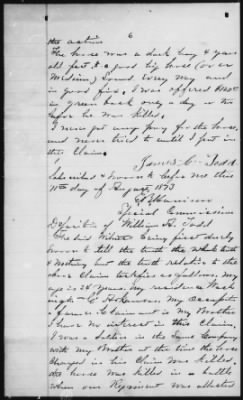 6
the action
The horse was a dark bay 4 years
old past, & a good big horse (over
Medium) Sound every way and
in good fix. I was offered
in green back only a day or two
before he was killed.
I never got any pay for the horse,
and never tried to until I put in
this Claim.
James C. Todd
Subscribed & sworn to before me this
day of August 1873
Special Commissioner
Deposition of William H. Todd
The said Witness being first duly
sworn to tell the truth the whole truth
& nothing but the truth relative to the
above Claim testifies as follows. My
age is 28 years. My residence Wash
ington Co Arkansas. My occupation
a farmer. Claimant is my Brother
I have no interest in this Claim.
I was a Soldier in the Same Company
with my Brother at the time the horse
charged in his Claim was Killed.
horse was killed in a battle
when our Regiment was attacked